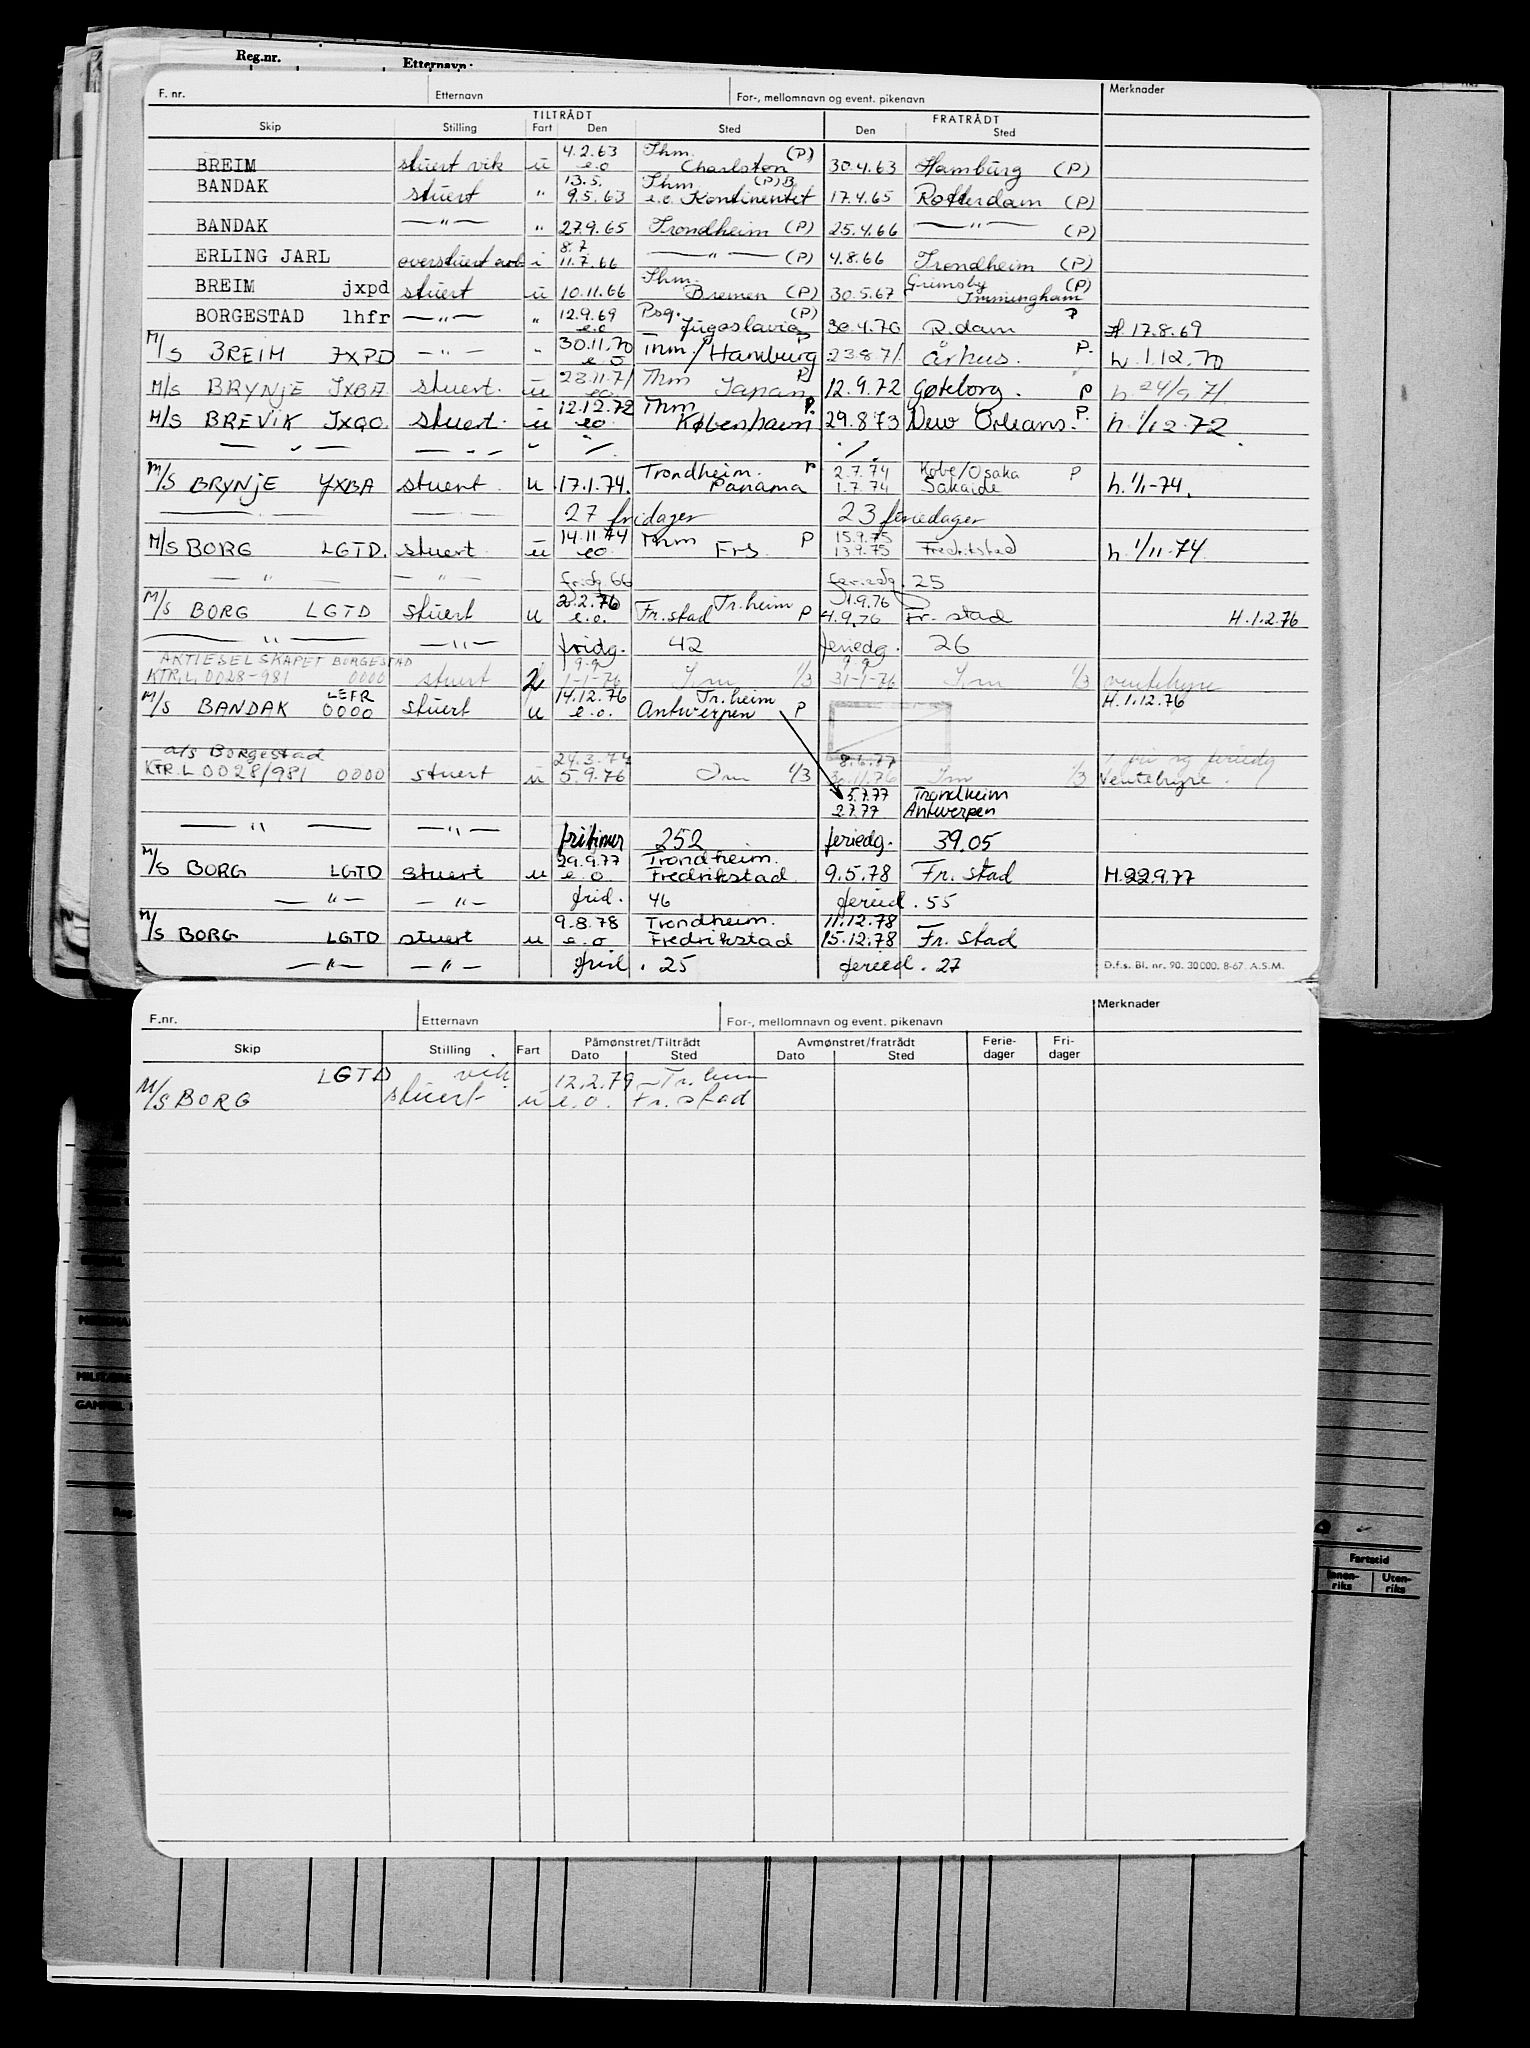 Reg.nr. Etternavn
F. nr. Etternavn For-, mellomnavn og event. pikenavn Merknader
TILTRÅDT FRATRÅDT
Skip Stilling Fart Den Sted Den Sted
4.2.63 Thm. (P)
BREIM stuert vik u e.o Charlston 30.4.63 Hamburg (P)
BANDAK 13.5. Thm. (P) B
stuert " 9.5.63 e.o. Kontinentet 17.4.65 Rotterdam (P)
BANDAK —"— " 27.9.65 Trondheim (P) 25.4.66 —"— (P)
8.7
ERLING JARL overstuert avl i 11.7.66 —"— (P) 4.8.66 Trondheim (P)
Thm. Grimsby (P)
BREIM jxpd stuert u 10.11.66 Bremen (P) 30.5.67 Immingham
12.9.69 Psg. (P) P
BORGESTAD lhfr —"— " e.o Jugoslavia 30.4.70 R.dam H. 17.8.69
30.11.70 P
M/S BREIM JXPD —"— " e.o Thm/Hamburg 23.8.71. Århus. P. h. 1.12.70
28.11.71 Thm P
M/S BRYNJE JXBA stuert. u eo Japan 12.9.72 Gøteborg. P h 24/9 71
12.12.72 Thm P.
M/S BREVIK JXQO stuert. u eo København 29.8.73 New Orleans. P. h. 1/12-72
— " — — " — " -/. -/.
Trondheim. P 2.7.74 Kobe/Osaka P
M/S BRYNJE JXBA stuert. u 17.1.74. Panama 1.7.74 Sakaide h. 1/1-74.
27 fridager 23 feriedager
14.11.74 Thm P 15.9.75
M/S BORG LGTD. stuert. u eo Frs. 13.9.75 Fredrikstad h. 1/11-74.
— " — — " — fridg. 66 feriedg. 25
2.2.76 Tr.heim 1.9.76
M/S BORG LGTD stuert u e.o. Fr.stad P 4.9.76 Fr. stad H.1.2.76
— " — —"— fridg. 42 feriedg. 26
AKTIESELSKAPET BORGESTAD 9.9 9.9
KTR.L. 0028-981 0000 stuert 2 1-1-76 1/3 31-1-76 1/3 ventehyre
LEFR 14.12.76 Tr.heim H.1.12.76
M/S BANDAK 0000 stuert u e.o. Antwerpen P
a/s Borgestad 24.3.77 8.6.77
KTR.L 0028/981 0000 stuert u 5.9.76 1/3 30.11.76 1/3 Ventehyre.
5.7.77 Trondheim
2.7.77 Antwerpen
— " — —"— fritimer 252 feriedg. 39.05
29.9.77 Trondheim.
M/S BORG LGTD stuert u e.o. Fredrikstad 9.5.78 Fr. stad H.22.9.77
— " — — " — frid. 46 feried. 55
9.8.78 Trondheim. 11.12.78
M/S BORG LGTD stuert u e.o. Fredrikstad 15.12.78 Fr. stad
— " — — " — frid. 25 feried. 27
D.f.s. Bl. nr. 90. 30000. 8-67. A.S.M.
F.nr. Etternavn For-, mellomnavn og event. pikenavn Merknader
Skip Stilling Fart Påmønstret/Tiltrådt Avmønstret/fratrådt Ferie- Fri-
Dato Sted Dato Sted dager dager
LGTD vik. 12.2.79 Tr.heim
M/S BORG stuert u e.o. Fr.stad
Fartstid
Innen- Uten-
riks riks